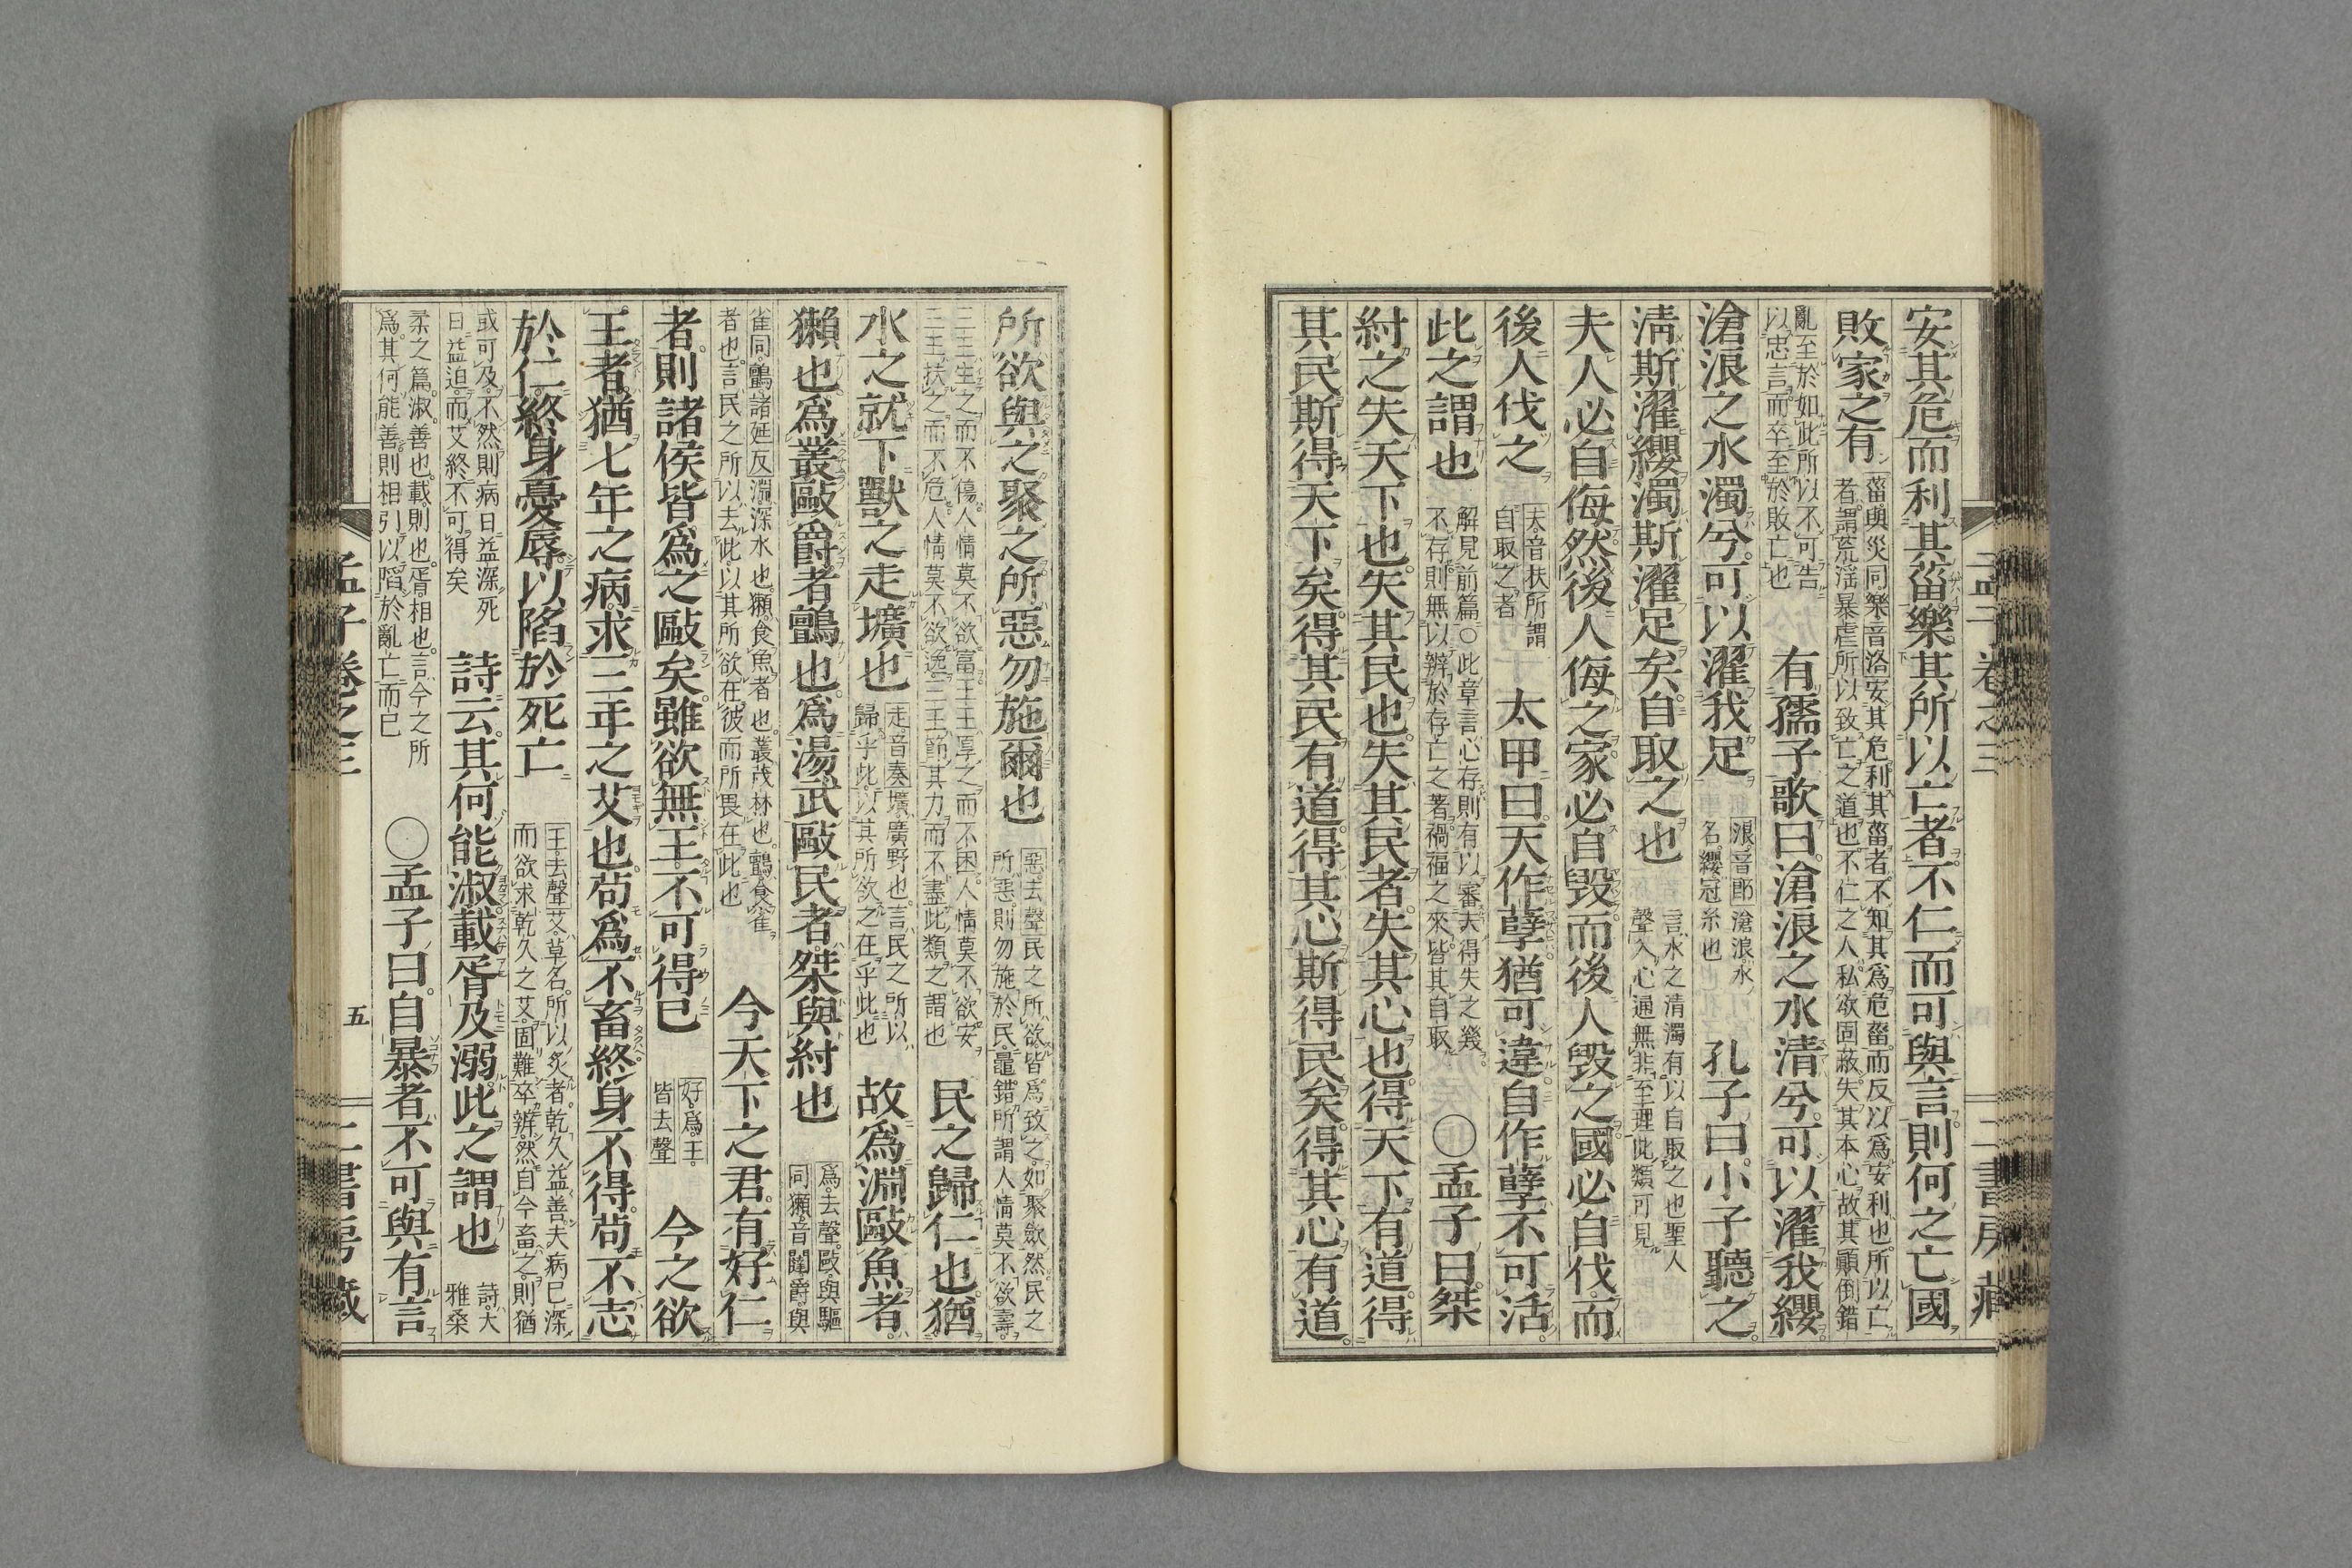 孟子卷之三
二書房藏
安其危而利其菑樂其所以亡者不仁而可與言則何之亡國
敗家之有
菑與災同樂音洛安其危利其菑者不知其爲危菑而反以爲安利也所以亡
者謂荒淫暴虐所以致亡之道也不仁之人私欲固蔽失其本心故其顚倒錯
亂至於如此所以不可告
以忠言而卒至於敗亡也
有孺子歌曰滄浪之水清兮可以濯我纓
滄浪之水濁兮可以濯我足
浪音郎滄浪水
名纓冠系也
孔子曰小子聽之
清斯濯纓濁斯濯足矣自取之也
言水之清濁有以自取之也聖人
聲入心通無非至理此類可見
夫人必自侮然後人侮之家必自毀而後人毀之國必自伐而
後人伐之
夫音扶所謂
自取之者
太甲曰天作孽猶可違自作孽不可活
此之謂也
解見前篇○此章言心存則有以審夫得失之幾
不存則無以辨於存亡之著禍福之來皆其自取
○孟子曰桀
紂之失天下也失其民也失其民者失其心也得天下有道得
其民斯得天下矣得其民有道得其心斯得民矣得其心有道
所欲與之聚之所惡勿施爾也
惡去聲民之所欲皆爲致之如聚斂然民之
所惡則勿施於民鼂錯所謂人情莫不欲壽
三王生之而不傷人情莫不欲富三王厚之而不困人情莫不欲安
三王扶之而不危人情莫不欲逸三王節其力而不盡此類之謂也
民之歸仁也猶
水之就下獸之走壙也
走音奏壙廣野也言民之所以
歸乎此以其所欲之在乎此也
故爲淵敺魚者
獺也爲叢敺爵者鸇也爲湯武敺民者桀與紂也
爲去聲敺與驅
同獺音闥爵與
雀同鸇諸延反淵深水也獺食魚者也叢茂林也鸇食雀
者也言民之所以去此以其所欲在彼而所畏在此也
今天下之君有好仁
者則諸侯皆爲之敺矣雖欲無王不可得已
好爲王
皆去聲
今之欲
王者猶七年之病求三年之艾也苟爲不畜終身不得苟不志
於仁終身憂辱以陷於死亡
王去聲艾草名所以灸者乾久益善夫病已深
而欲求乾久之艾固難卒辨然自今畜之則猶
或可及不然則病日益深死
日益迫而艾終不可得矣
詩云其何能淑載胥及溺此之謂也
詩大
雅桑
柔之篇淑善也載則也胥相也言今之所
爲其何能善則相引以陷於亂亡而已
○孟子曰自暴者不可與有言
孟子卷之三
五
二書房藏